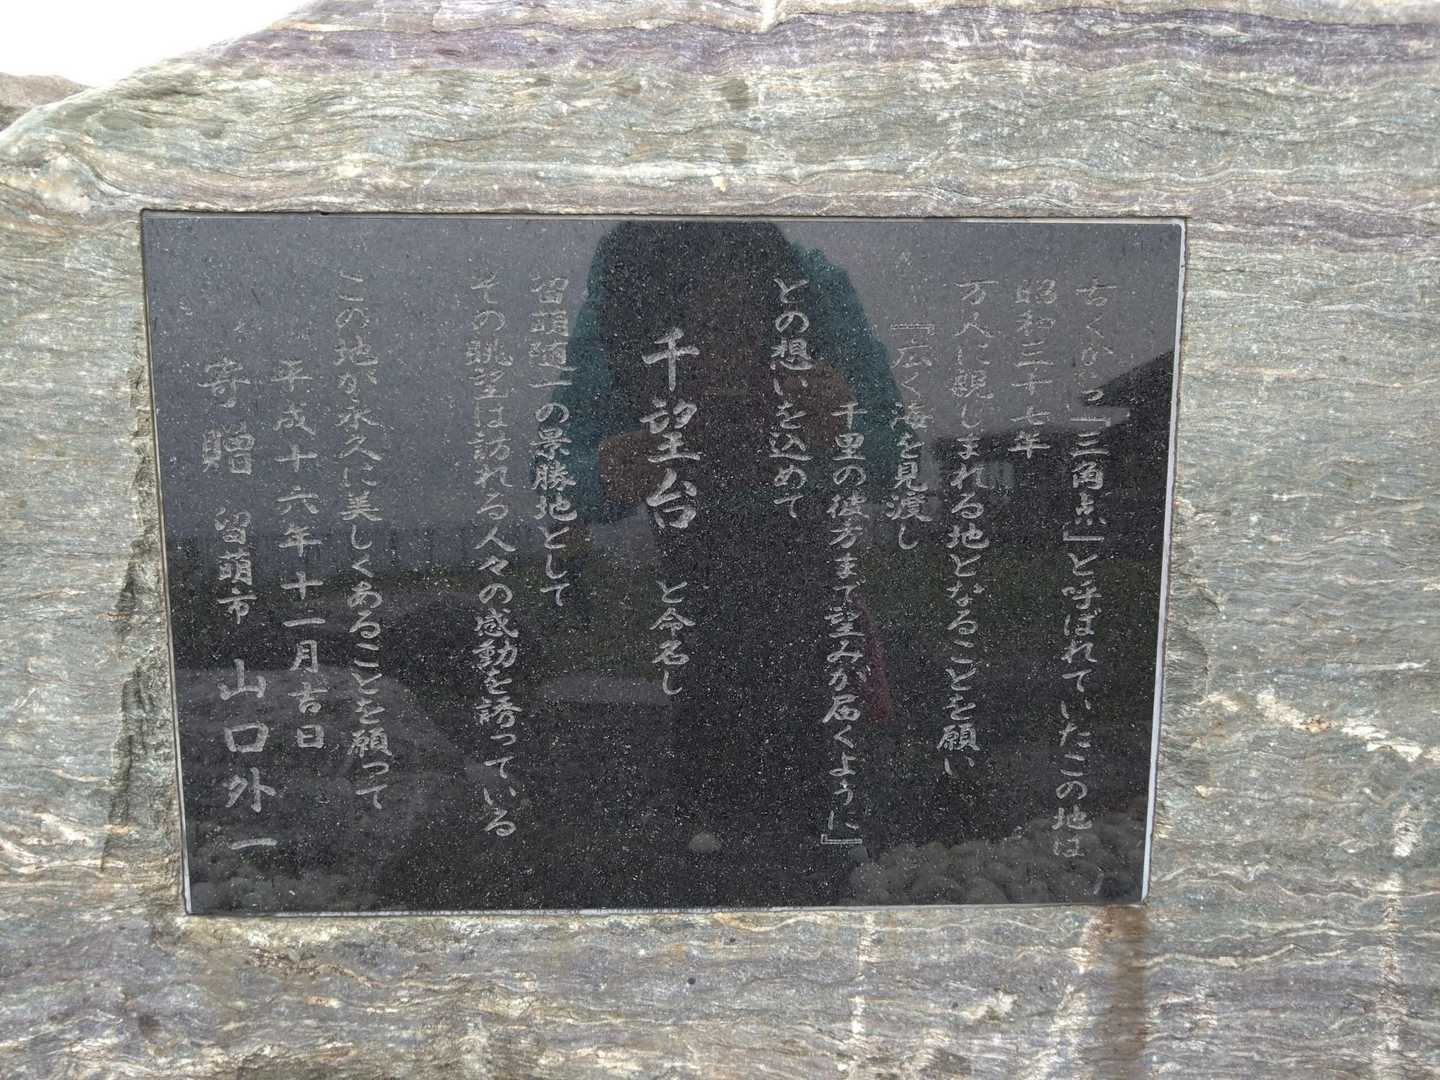 古くから「三角点」と呼ばれていたこの地は
昭和三十七年
万人に親しまれる地となることを願い
『広く海を見渡し
千里の彼方まで望みが届くように』
との想いを込めて
千望台 と命名し
留萌随一の景勝地として
その眺望は訪れる人々の感動を誘っている
この地が永久に美しくあることを願って
平成十六年十一月吉日
寄贈 留萌市 山口外一